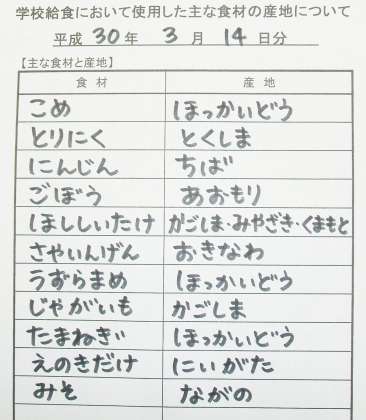 学校給食において使用した主な食材の産地について
平成 30 年 3 月 14 日分
【主な食材と産地】
食材 産地
こめ ほっかいどう
とりにく とくしま
にんじん ちば
ごぼう あおもり
ほししいたけ かごしま・みやざき・くまもと
さやいんげん おきなわ
うずらまめ ほっかいどう
じゃがいも かごしま
たまねぎ ほっかいどう
えのきだけ にいがた
みそ ながの